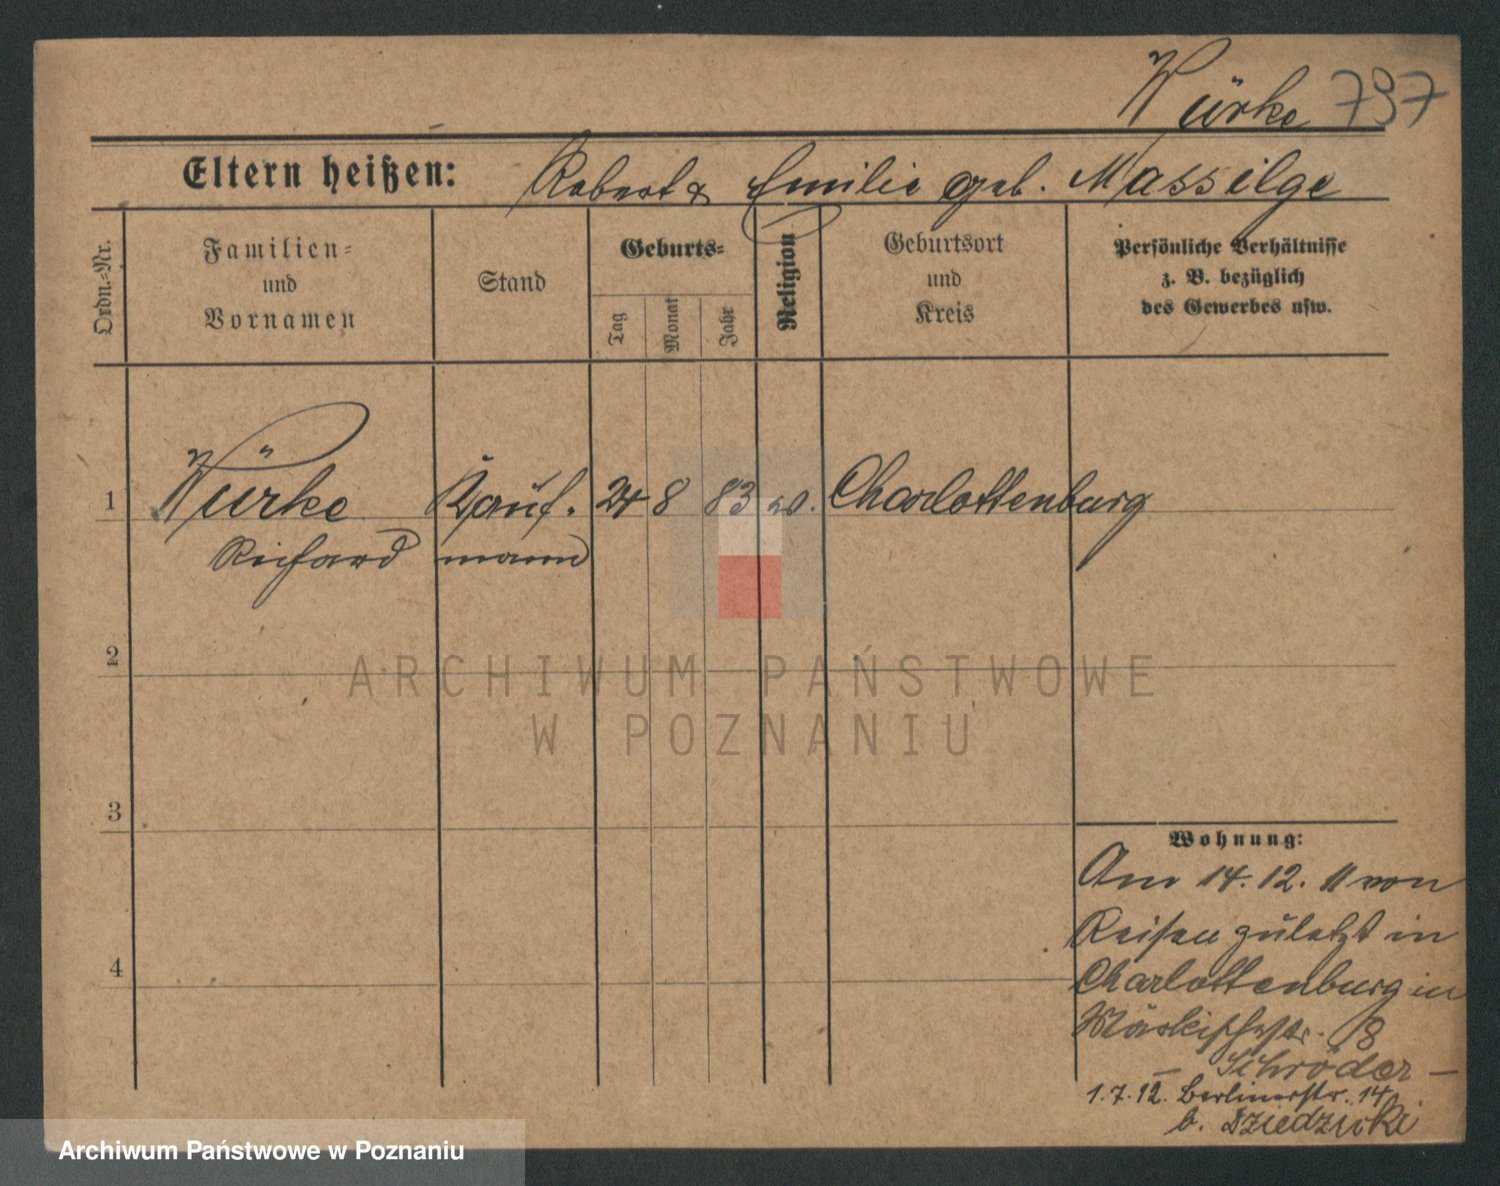 Würke 797
Eltern heißen: Robert & Emilie geb. Massilge
Ordn.=Nr.
Familien=
und
Vornamen
Stand
Geburts=
Tag
Monat
Jahr
Religion
Geburtsort
und
Kreis
Persönliche Verhältnisse
z. B. bezüglich
des Gewerbes usw.
1 Würke Kauf. 24 8 83 Charlottenburg
Richard mann
2
3
4
Wohnung:
Am 14.12.11 von
Reisen zuletzt in
Charlottenburg in
Märkischestr. 8
– Schröder –
1.7.12. Berlinerstr. 14
b. Dziedzicki
ARCHIWUM PAŃSTWOWE
W POZNANIU
Archiwum Państwowe w Poznaniu